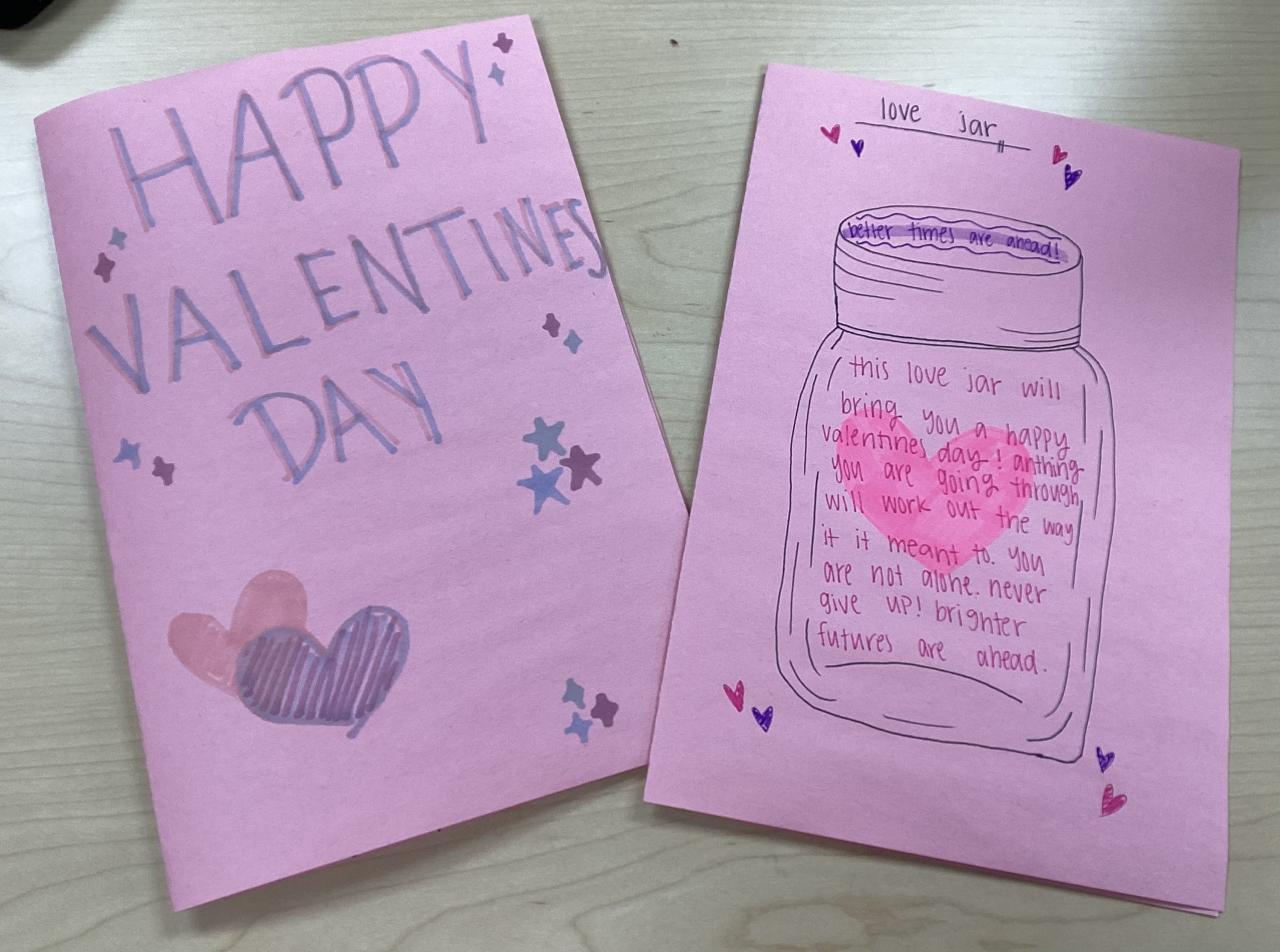 HAPPY
VALENTINES
DAY
love jar
better times are ahead!
this love jar will
bring you a happy
valentines day! anthing
you are going through
will work out the way
it it meant to. you
are not alone. never
give up! brighter
futures are ahead.